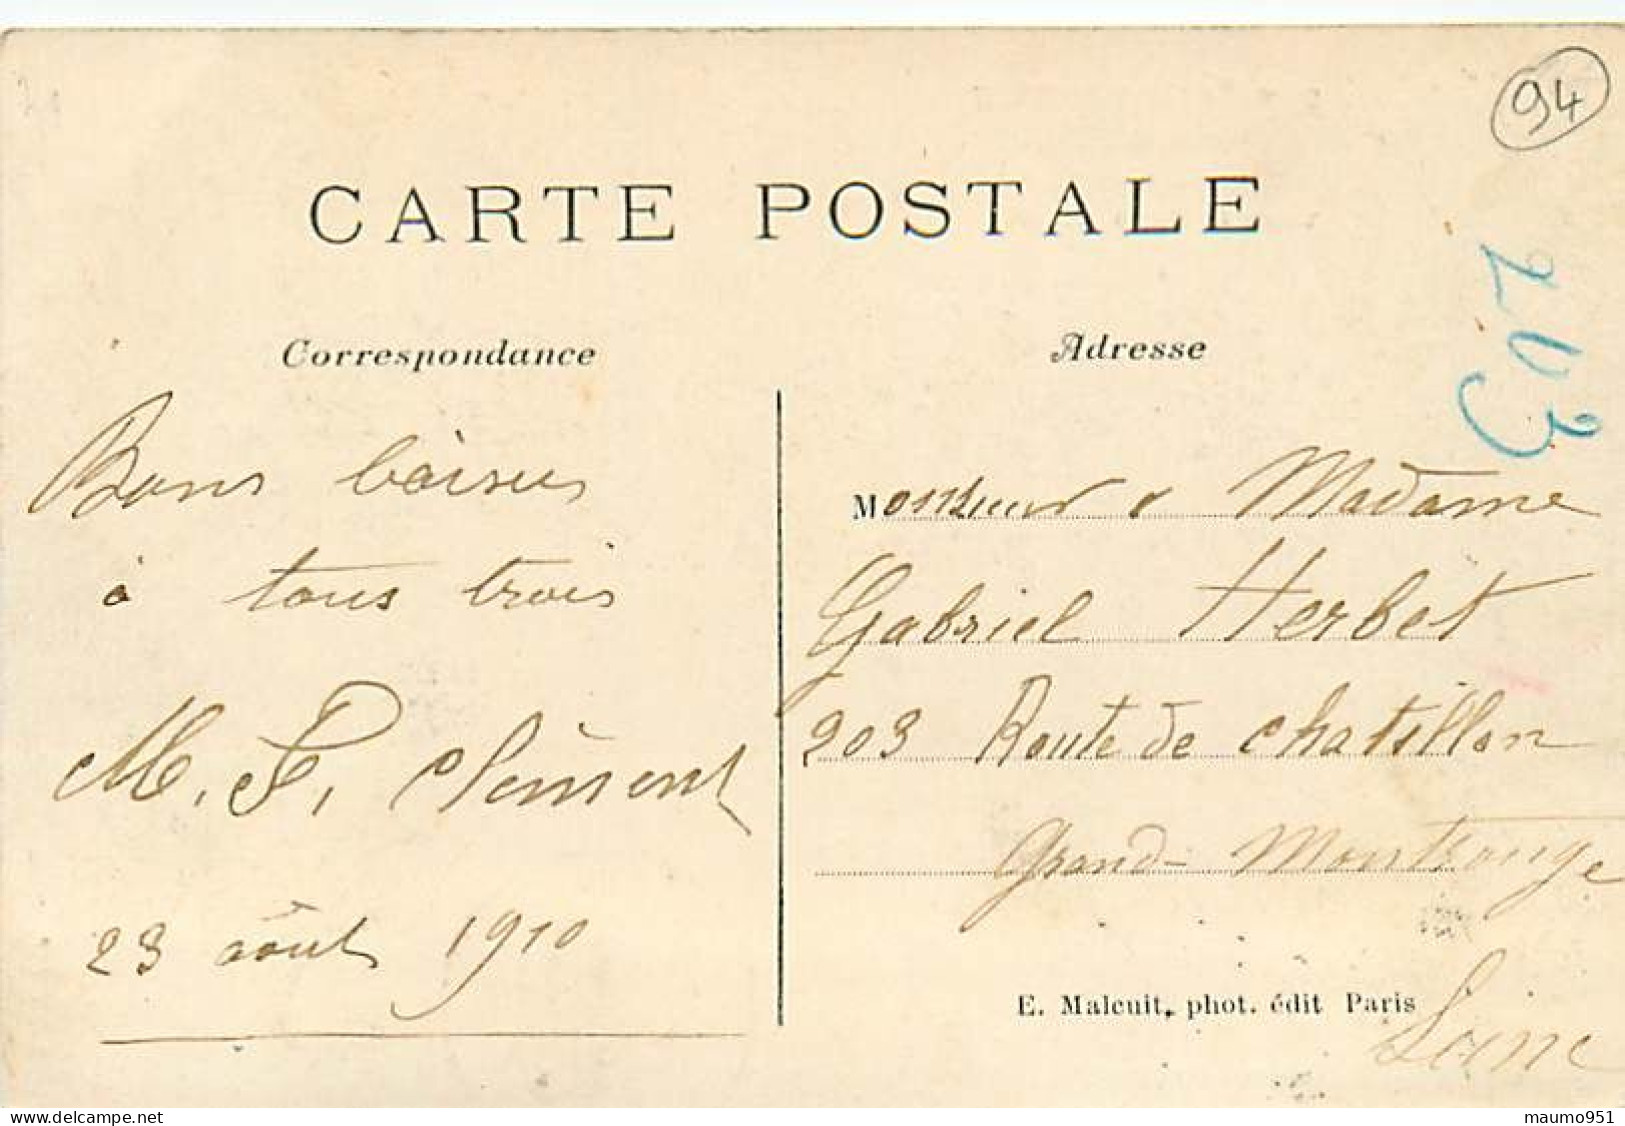 94
CARTE POSTALE
203
Correspondance
Bons baisers
à tous trois
M. P. Clément
23 août 1910
Adresse
Monsieur & Madame
Gabriel Herbet
203 Route de Chatillon
Grand-Montrouge
Seine
E. Malcuit, phot. édit Paris
delcampe.net
maumo951